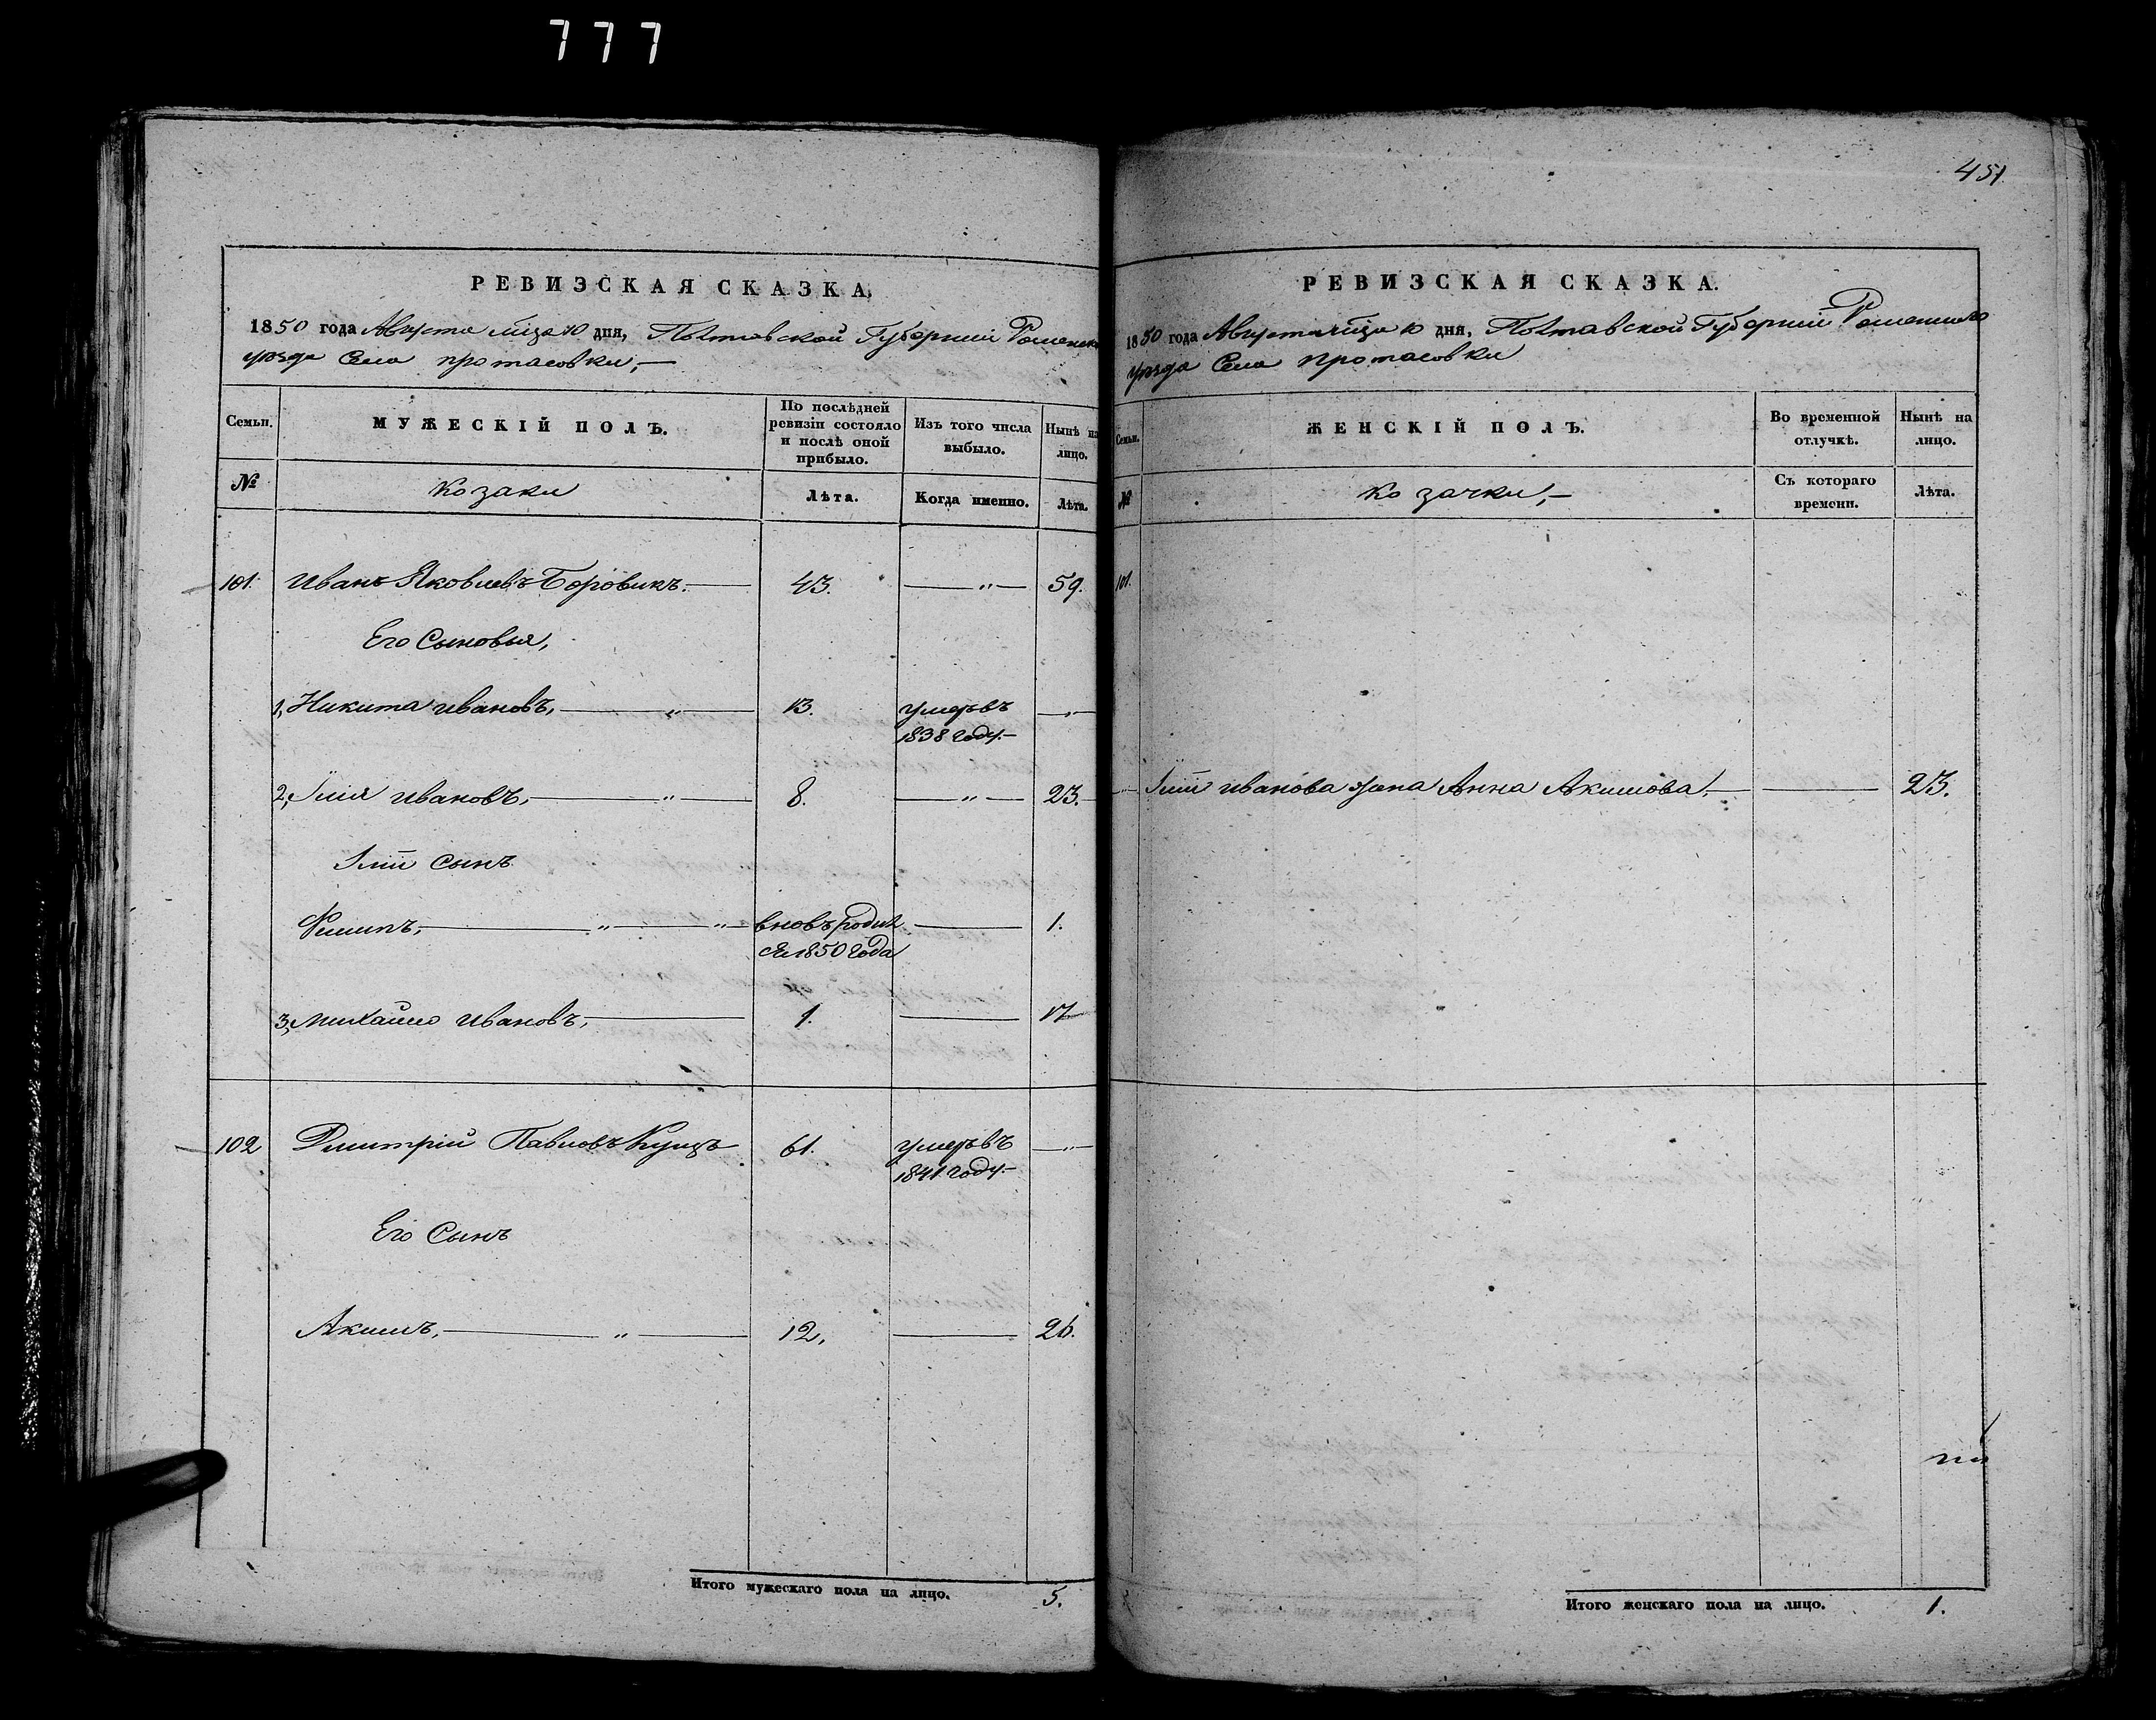 777
РЕВИЗСКАЯ СКАЗКА.
1850 года Августа м͠ца 10 дня, Полтавской Губерніи Роменск
уезда Села протасовки,—
Семьи.
МУЖЕСКІЙ ПОЛЪ.
По послѣдней
ревизіи состояло
и послѣ оной
прибыло.
Изъ того числа
выбыло.
Нынѣ на
лицо.
№
Козаки
Лѣта.
Когда именно.
Лѣта.
101. Иванъ Яковлевъ Боровикъ.— 43. —„— 59.
Его Сыновья,
1, Никита ивановъ,—„— 13. умеръ въ —„—
1838 году.—
2, Іллія ивановъ,—„— 8. —„— 23.
Іллїи сынъ
Филипъ,—„—„— вновь родил — 1.
ся 1850 года
3, михайло ивановъ,— 1. — 17
102 Дмитрій Павловъ Куцъ— 61. умеръ въ —„—
1841 году.—
Его Сынъ
Акимъ,—„— 12, — 26.
Итого мужескаго пола на лицо. 5.
451
РЕВИЗСКАЯ СКАЗКА.
1850 года Августа м͠ца 10 дня, Полтавской Губерніи Роменскаго
уезда Села протасовки
Семьи.
ЖЕНСКІЙ ПОЛЪ.
Во временной
отлучкѣ.
Нынѣ на
лицо.
№
козачки,—
Съ котораго
времени.
Лѣта.
101.
Іллїи иванова жена Анна Акимова.— — 23.
Итого женскаго пола на лицо. 1.